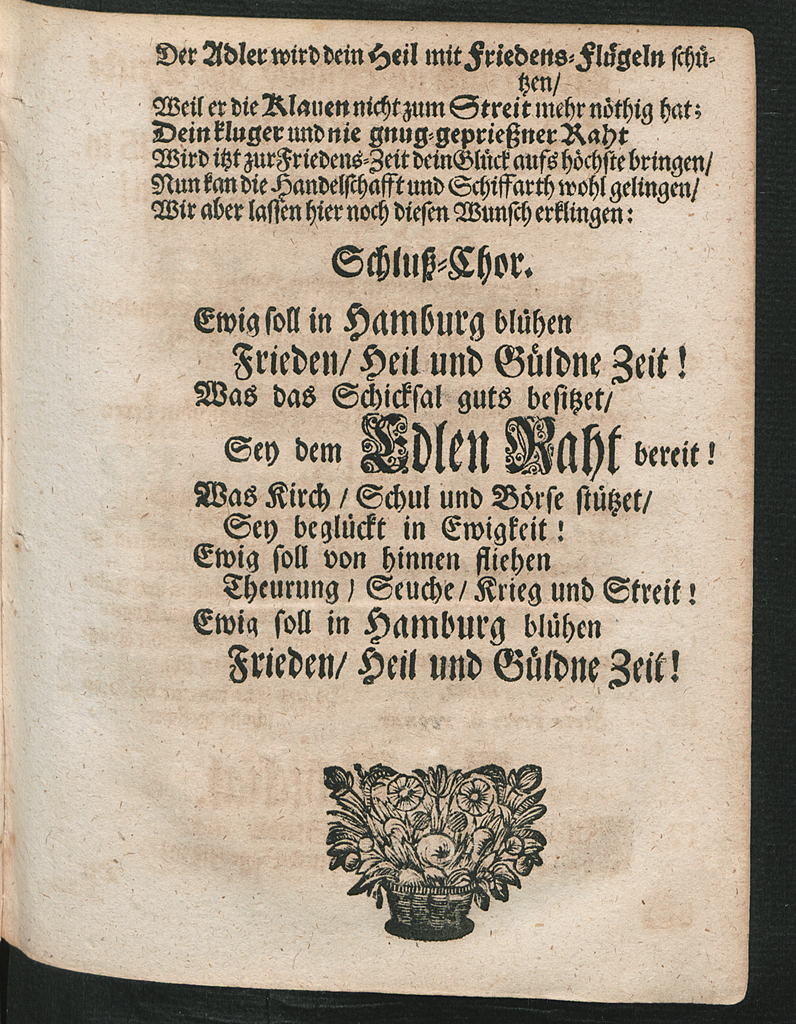 Der Adler wird dein Heil mit Friedens-Flügeln schü-
tzen/
Weil er die Klauen nicht zum Streit mehr nöthig hat;
Dein kluger und nie gnug-geprießner Raht
Wird itzt zur Friedens-Zeit dein Glück aufs höchste bringen/
Nun kan die Handelschafft und Schiffarth wohl gelingen/
Wir aber lassen hier noch diesen Wunsch erklingen:
Schluß-Chor.
Ewig soll in Hamburg blühen
Frieden/ Heil und Güldne Zeit!
Was das Schicksal guts besitzet/
Sey dem Edlen Raht bereit!
Was Kirch/ Schul und Börse stützet/
Sey beglückt in Ewigkeit!
Ewig soll von hinnen fliehen
Theurung/ Seuche/ Krieg und Streit!
Ewig soll in Hamburg blühen
Frieden/ Heil und Güldne Zeit!